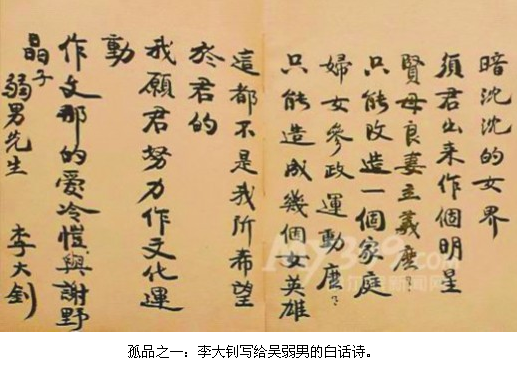 暗沈沈的女界
須君出来作個明星
賢母良妻主義麽?
只能改造一個家庭
婦女參政運動麽?
只能造成幾個女英雄
這都不是我所希望
於君的
我願君努力作文化運
動
作文那的爱冷愷與謝野
晶子
弱男先生
李大釗
孤品之一：李大钊写给吴弱男的白话诗。